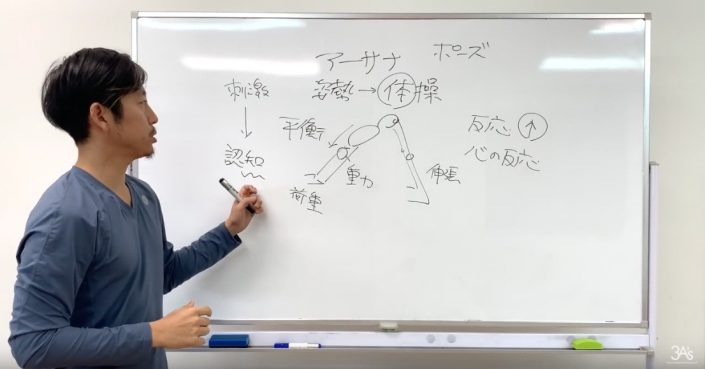 アーサナ ポーズ
姿勢→体操
刺激
↓
認知
平衡
重力
荷重
伸張
反応 ↑
心の反応
3A's